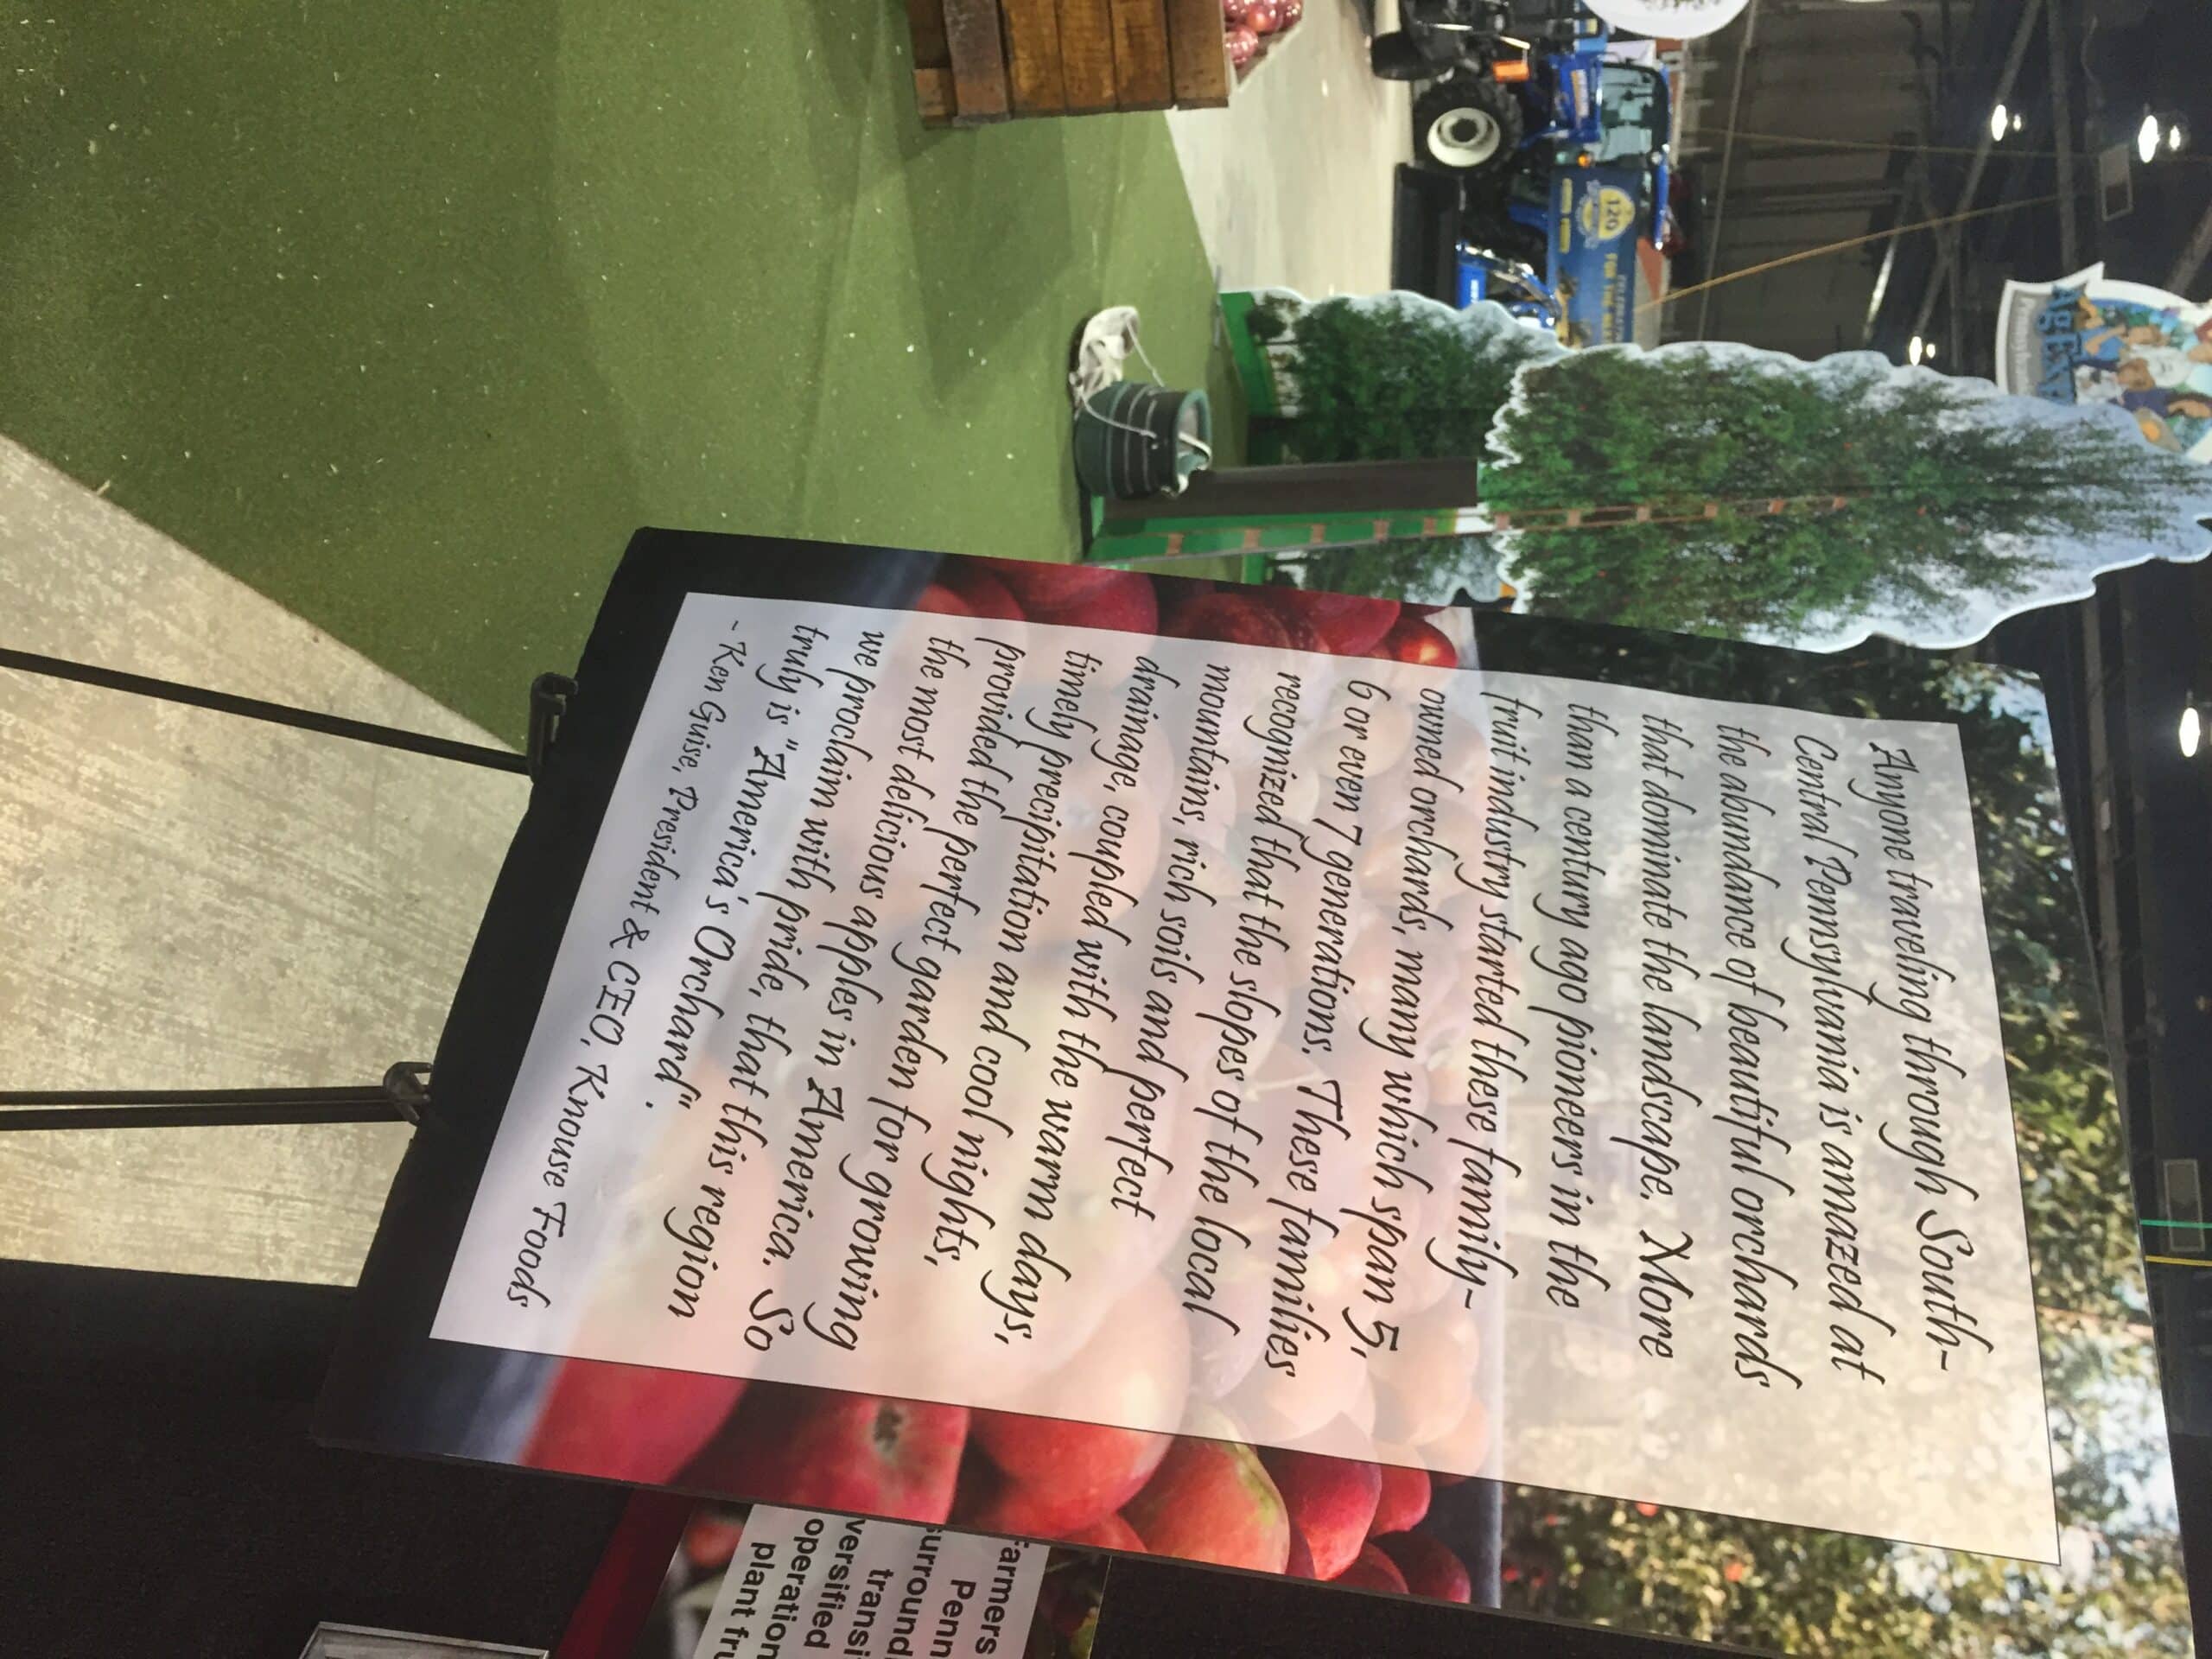 Anyone traveling through South-
Central Pennsylvania is amazed at
the abundance of beautiful orchards
that dominate the landscape. More
than a century ago pioneers in the
fruit industry started these family-
owned orchards, many which span 5,
6 or even 7 generations. These families
recognized that the slopes of the local
mountains, rich soils and perfect
drainage, coupled with the warm days,
timely precipitation and cool nights,
provided the perfect garden for growing
the most delicious apples in America. So
we proclaim with pride, that this region
truly is "America's Orchard".
- Ken Guise, President & CEO, Knouse Foods
armers
Penn
urround
transi
versified
operation
plant fru
120